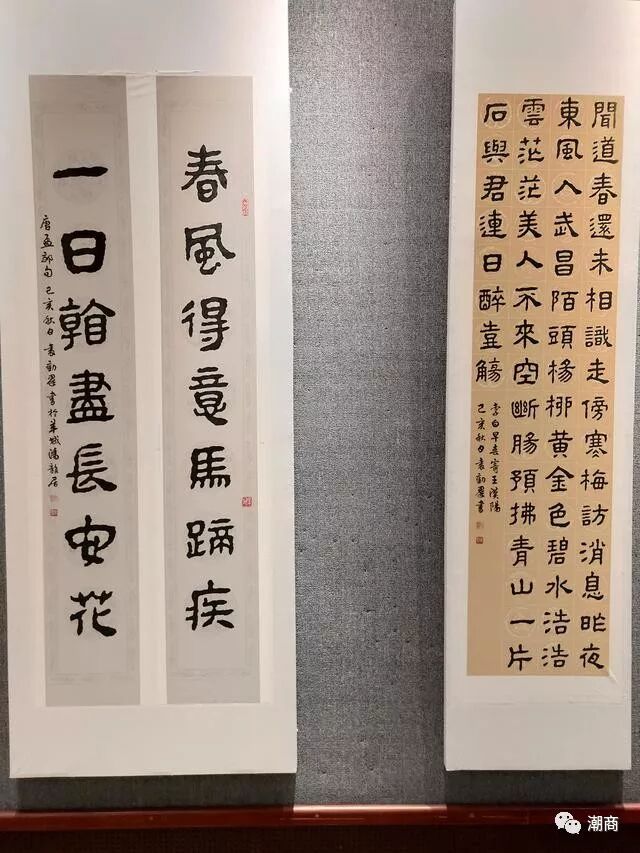 春風得意馬蹄疾
一日看盡長安花
唐孟郊句 己亥秋日袁勤書於羊城鴻韻居
聞道春還未相識走傍寒梅訪消息昨夜
東風入武昌陌頭楊柳黃金色碧水浩浩
雲茫茫美人不來空斷腸預拂青山一片
石與君連日醉壺觴
李白早春寄王漢陽
己亥秋日袁勤書
潮商